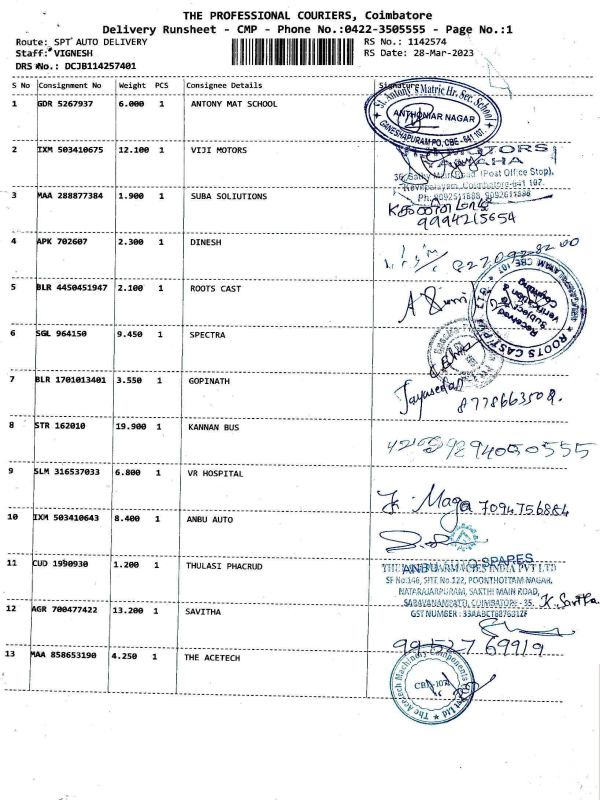 THE PROFESSIONAL COURIERS, Coimbatore
Delivery Runsheet - CMP - Phone No.:0422-3505555 - Page No.:1
Route: SPT AUTO DELIVERY
RS No.: 1142574
Staff: VIGNESH
RS Date: 28-Mar-2023
DRS No.: DCJB114257401
S No Consignment No Weight PCS Consignee Details Signature
1 GDR 5267937 6.000 1 ANTONY MAT SCHOOL
St. Antony's Matric Hr. Sec. School
ANTHONIAR NAGAR
GANESHAPURAM PO, CBE - 641 107.
2 IXM 503410675 12.100 1 VIJI MOTORS
MOTORS
YAMAHA
Main Road (Post Office Stop),
Coimbatore-641 107.
3 MAA 288877384 1.900 1 SUBA SOLIUTIONS
9994215654
4 APK 702607 2.300 1 DINESH
5 BLR 4450451947 2.100 1 ROOTS CAST
ROOTS CAST PVT LTD
CBE 107
Received
Subject to
Verification &
Counting
6 SGL 964150 9.450 1 SPECTRA
7 BLR 1701013401 3.550 1 GOPINATH
8778663508.
8 STR 162010 19.900 1 KANNAN BUS
9894050555
9 SLM 316537033 6.800 1 VR HOSPITAL
Maga 7094756884
10 IXM 503410643 8.400 1 ANBU AUTO
ANBU AUTO SPARES
11 CUD 1990930 1.200 1 THULASI PHACRUD
PHARMACIES INDIA PVT LTD
SF No:146, SITE No.122, POONTHOTTAM NAGAR,
NATARAJARPURAM, SAKTHI MAIN ROAD,
SARAVANAMPATTI, COIMBATORE - 35.
GST NUMBER : 33AABCT6876B1ZF
12 AGR 700477422 13.200 1 SAVITHA
K. Savitha
99527 69919
13 MAA 858653190 4.250 1 THE ACETECH
The Acetech Machinery Components Pvt Ltd
CBE-107